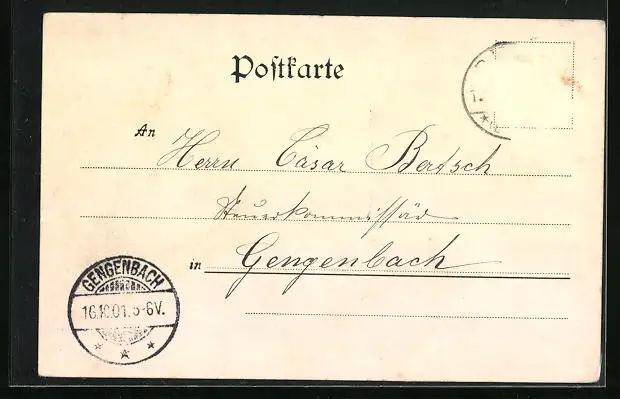 Postkarte
An Herrn Cäsar Bertsch
Steuerkommissär
in Gengenbach
GENGENBACH
16.10.01. 5-6V.